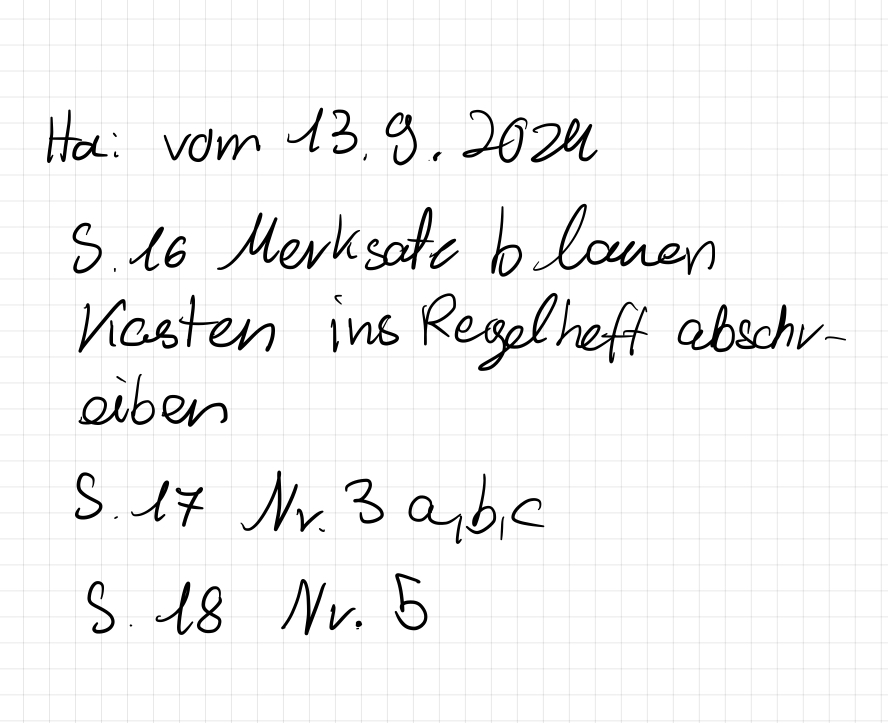 Ha: vom 13.9.2024
S.16 Merksatz blauen
Kasten ins Regelheft abschr-
eiben
S.17 Nr. 3 a,b,c
S.18 Nr. 5